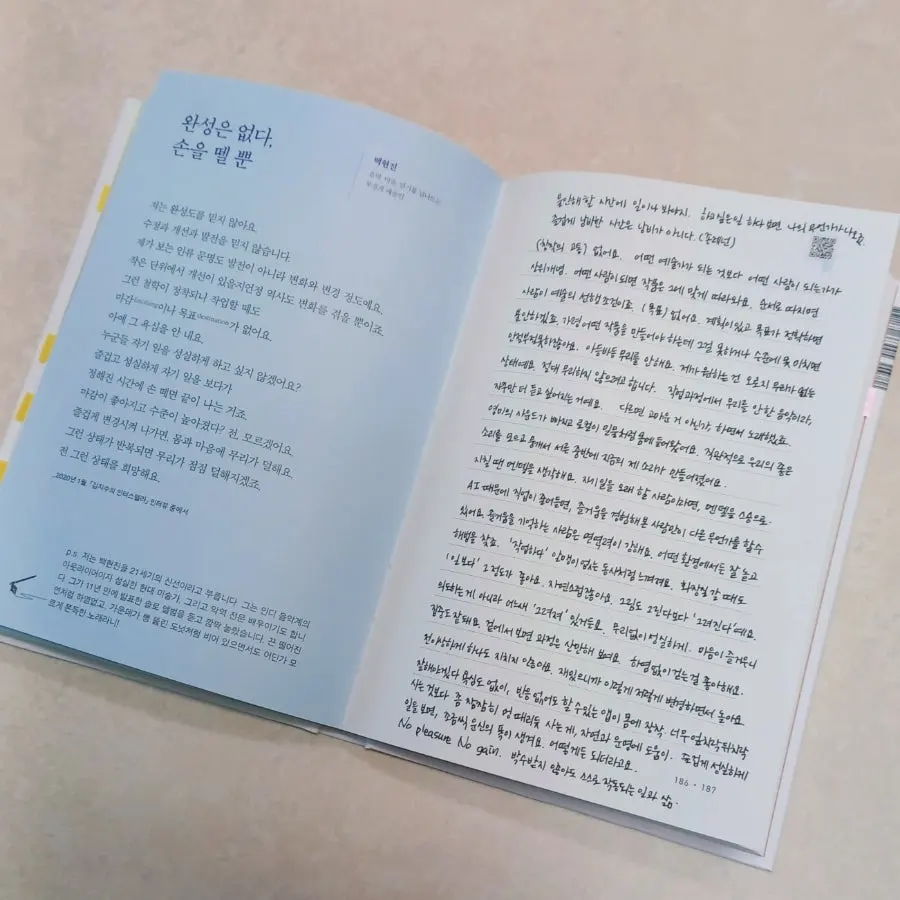 완성은 없다,
손을 뗄 뿐
백현진
음악, 미술, 연기를 넘나드는
전방위 예술인
저는 완성도를 믿지 않아요.
수정과 개선과 발전을 믿지 않습니다.
제가 보는 인류 문명도 발전이 아니라 변화와 변경 정도예요.
작은 단위에서 개선이 있을지언정 역사도 변화를 겪을 뿐이죠.
그런 철학이 정착되니 작업할 때도
마감이나 목표가 없어요.
아예 그 욕심을 안 내요.
누군들 자기 일을 성실하게 하고 싶지 않겠어요?
즐겁고 성실하게 자기 일을 보다가
정해진 시간에 손 떼면 끝이 나는 거죠.
마감이 좋아지고 수준이 높아졌다? 전, 모르겠어요.
즐겁게 변경시켜 나가면, 몸과 마음에 무리가 덜해요.
그런 상태가 반복되면 무리가 점점 덜해지겠죠.
전 그런 상태를 희망해요.
2020년 1월, 「김지수의 인터스텔라」 인터뷰 중에서
p.s. 저는 백현진을 21세기의 신선이라고 부릅니다. 그는 인디 음악계의
아웃라이어이자 성실한 현대 미술가, 그리고 악역 전문 배우이기도 합니
다. 그가 11년 만에 발표한 솔로 앨범을 듣고 깜짝 놀랐습니다. 끈 떨어진
연처럼 하염없고, 가운데가 뻥 뚫린 도넛처럼 비어 있으면서도 어딘가 모
르게 뿐뜩한 노래라니!
불안해할 시간에 일이나 봐야지. 하고싶은일 하다 보면 나의 무언가가 나오죠.
즐겁게 낭비한 시간은 낭비가 아니다. (존레넌)
(창작의 고통) 없어요. 어떤 예술가가 되는 것보다 어떤 사람이 되는가가
상위개념. 어떤 사람이 되면 작품은 그에 맞게 따라와요. 순서로 따지면
사람이 예술의 선행조건이죠. (목표) 없어요. 계획이 있고 목표가 정확하면
불안하겠죠. 가령 어떤 작품을 만들어야 하는데 그걸 못하거나 수준에 못 미치면
안절부절못하잖아요. 아등바등 무리를 안해요. 제가 원하는 건 오로지 무리가 없는
상태예요. 절대 무리하지 않으려고 합니다. 작업과정에서 무리를 안 한 음악이라,
자꾸만 더 듣고 싶어지는 거예요. 다르면 고마운 거 아닌가, 하면서 노래했죠.
영미의 사운드가 빠지고 로컬이 밑물처럼 몸에 들어왔어요. 직관적으로 우리의 좋은
소리를 모으고 뭉개서 서른 중반에 지금의 제 소리가 만들어졌어요.
지칠 땐 멘델을 생각해요. 자기일을 오래 할 사람이라면, 멘델을 스승으로.
AI 때문에 직업이 줄어들면, 즐거움을 경험해본 사람만이 다른 무언가를 할 수
있어요. 즐거움을 기억하는 사람은 면역력이 강해요. 어떤 환경에서든 잘 놀고
해법을 찾죠. '작업하다' 압박이 없는 동사처럼 느껴져요. 화장실 갈 때도
'일보다' 그 정도가 좋아요. 자연스럽잖아요. 그림도 그린다보다 '그려진다'예요.
의도하는 게 아니라 어느새 '그려져' 있거든요. 무리없이 성실하게. 마음이 즐거우니
집중도 잘돼요. 겉에서 보면 과정은 산만해 보여요. 하염없이 걷는 걸 좋아해요.
전 이상하게 하나도 지치지 않아요. 재밌으니까 이렇게 저렇게 변형하면서 놀아요.
잘해야겠다 욕심도 없이, 반응 없어도 할 수 있는 앱이 몸에 장착. 너무 엎치락뒤치락
사는 것보다 좀 잠잠히 멍 때리듯 사는 게, 자연과 운명에 도움이. 즐겁게 성실하게
일을 보면, 조금씩 운신의 폭이 생겨요. 어떻게든 되더라고요.
No pleasure No gain. 박수받지 않아도 스스로 작동되는 일과 삶.
186 · 187